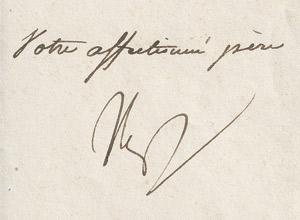 Votre affectionné père